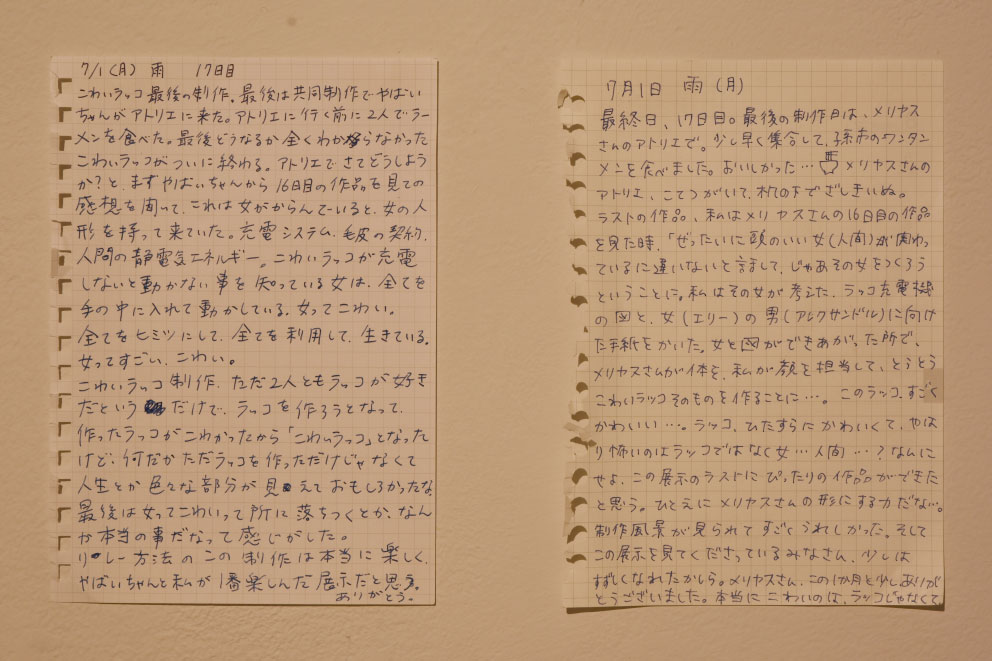 7/1(月) 雨 17日目
こわいラッコ最後の制作。最後は共同制作でやばい
ちゃんがアトリエに来た。アトリエに行く前に2人でラー
メンを食べた。最後どうなるか全くわからなかった
こわいラッコがついに終わる。アトリエでさてどうしよう
か?と、まずやばいちゃんから16日目の作品を見ての
感想を聞いて、これは女がからんでいると、女の人
形を持って来ていた。充電システム、毛皮の契約、
人間の静電気エネルギー。こわいラッコが充電
しないと動かない事を知っている女は、全てを
手の中に入れて動かしている。女ってこわい。
全てをヒミツにして、全てを利用して、生きている。
女ってすごい、こわい。
こわいラッコ制作、ただ2人ともラッコが好き
だというだけで、ラッコを作ろうとなって、
作ったラッコがこわかったから「こわいラッコ」となった
けど、何だかただラッコを作っただけじゃなくて
人生とか色々な部分が見えておもしろかったな
最後は女ってこわいって所に落ちつくとか、なん
か本当の事だなって感じがした。
リレー方法のこの制作は本当に楽しく、
やばいちゃんと私が1番楽しんだ展示だと思う。
ありがとう。
7月1日 雨 (月)
最終日、17日目。最後の制作日は、メリヤス
さんのアトリエで。少し早く集合して、孫市のワンタン
メンを食べました。おいしかった… メリヤスさんの
アトリエ、こてつがいて、机の下でざしきいぬ。
ラストの作品、私はメリヤスさんの16日目の作品
を見た時、「ぜったいに頭のいい女(人間)が関わっ
ているに違いないと言まして、じゃあその女をつくろう
ということに。私はその女が考えた、ラッコ充電機
の図と、女(エリー)の男(アレクサンドル)に向け
た手紙をかいた。女と図ができあがった所で、
メリヤスさんが体を、私が顔を担当して、とうとう
こわいラッコそのものを作ることに…。このラッコ、すごく
かわいい…。ラッコ、ひたすらにかわいくて、やは
り怖いのはラッコではなく女…人間…?なんに
せよ、この展示のラストにぴったりの作品ができた
と思う。ひとえにメリヤスさんの形にする力だな…。
制作風景が見られてすごくうれしかった。そして
この展示を見てくださっているみなさん、少しは
すずしくなれたかしら。メリヤスさん、この1か月と少しありが
とうございました。本当にこわいのは、ラッコじゃなくて